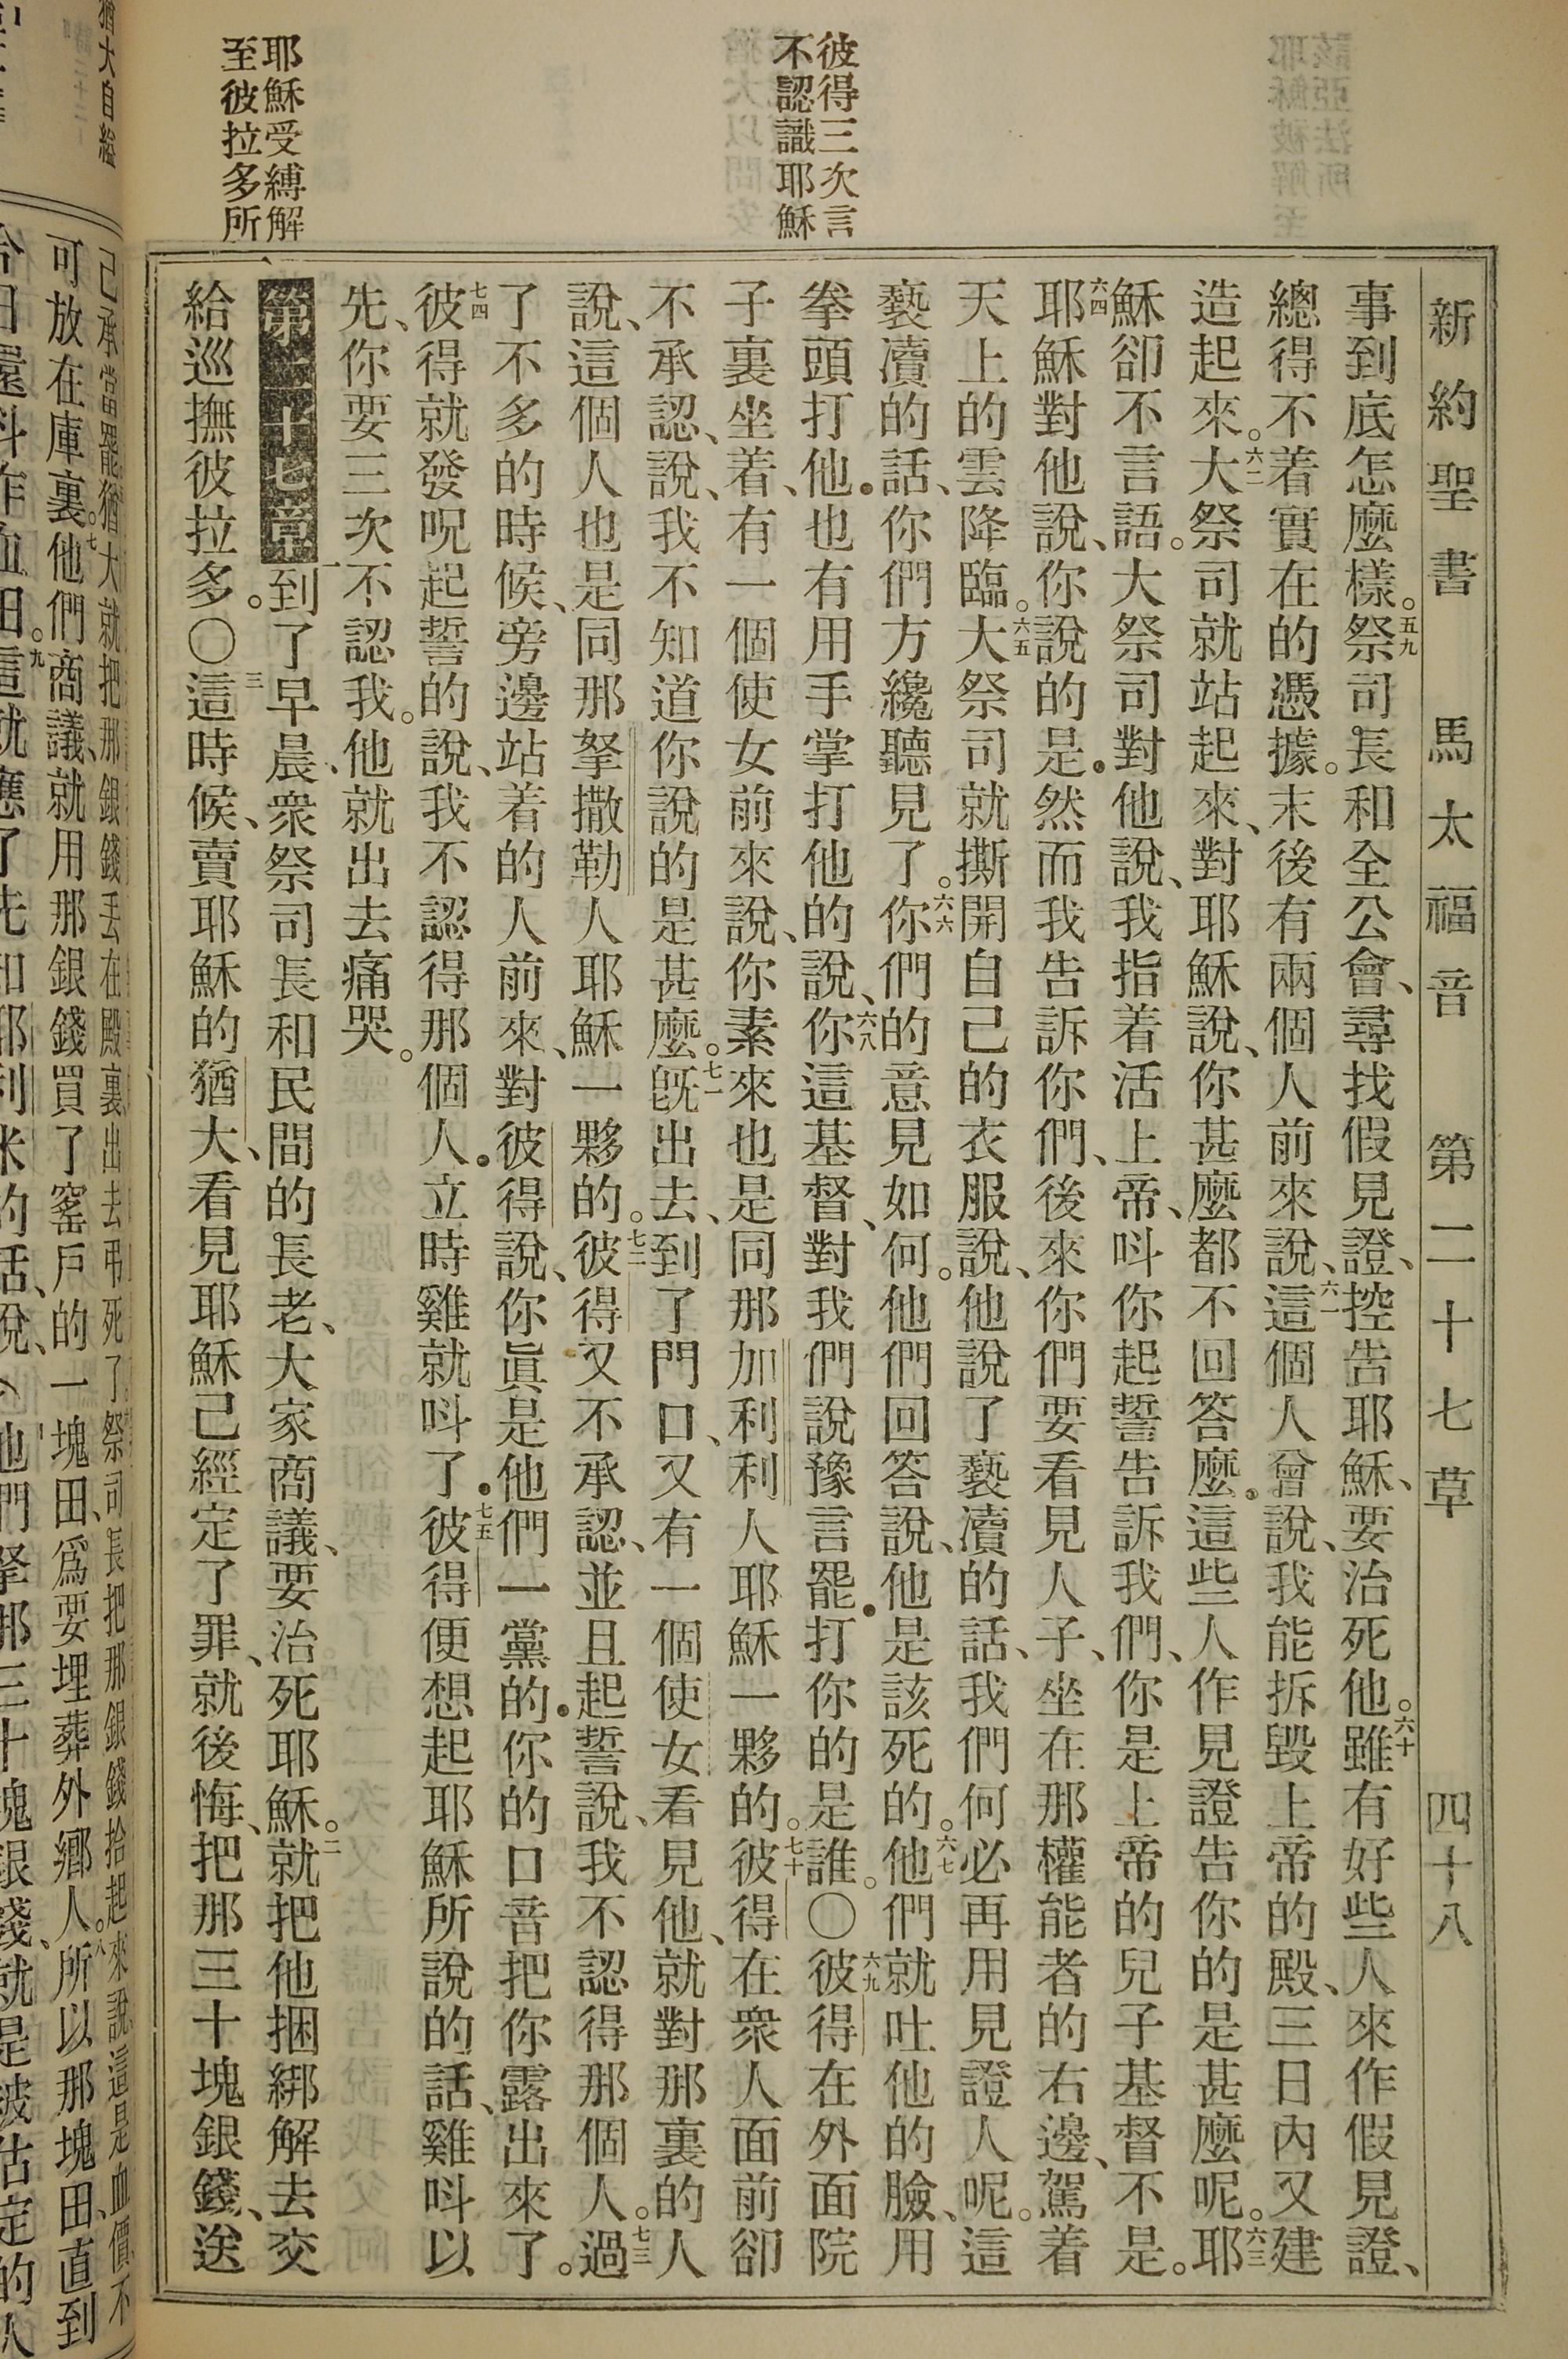 新約聖書 馬太福音 第二十七章 四十八
彼得三次言
不認識耶穌
耶穌受縛解
至彼拉多所
事到底怎麼樣。五九祭司長和全公會、尋找假見證、控告耶穌、要治死他。六十雖有好些人來作假見證、
總得不着實在的憑據。末後有兩個人前來說、六一這個人曾說、我能拆毀上帝的殿、三日內又建
造起來。六二大祭司就站起來、對耶穌說、你甚麼都不回答麼.這些人作見證告你的是甚麼呢。六三耶
穌卻不言語。大祭司對他說、我指着活上帝、呌你起誓告訴我們、你是上帝的兒子基督不是。
六四耶穌對他說、你說的是.然而我告訴你們、後來你們要看見人子、坐在那權能者的右邊、駕着
天上的雲降臨。六五大祭司就撕開自己的衣服說、他說了褻瀆的話、我們何必再用見證人呢。這
褻瀆的話、你們方纔聽見了。六六你們的意見如何。他們回答說、他是該死的。六七他們就吐他的臉、用
拳頭打他.也有用手掌打他的說、六八你這基督、對我們說豫言罷.打你的是誰。〇六九彼得在外面院
子裏坐着、有一個使女前來說、你素來也是同那加利利人耶穌一夥的。七十彼得在衆人面前卻
不承認、說、我不知道你說的是甚麼。七一旣出去、到了門口、又有一個使女看見他、就對那裏的人
說、這個人也是同那拏撒勒人耶穌一夥的。七二彼得又不承認、並且起誓說、我不認得那個人。七三過
了不多的時候、旁邊站着的人前來、對彼得說、你眞是他們一黨的.你的口音把你露出來了。
七四彼得就發呪起誓的說、我不認得那個人.立時雞就呌了.七五彼得便想起耶穌所說的話、雞呌以
先、你要三次不認我。他就出去痛哭。
第二十七章 一到了早晨、衆祭司長和民間的長老、大家商議、要治死耶穌。二就把他捆綁解去交
給巡撫彼拉多。〇三這時候、賣耶穌的猶大、看見耶穌己經定了罪、就後悔、把那三十塊銀錢、送
猶大自縊
己承當罷猶大就把那銀錢丟在殿裏出去弔死了祭司長把那銀錢拾起來說這是血價不
可放在庫裏。七他們商議、就用那銀錢買了窰戶的一塊田、爲要埋葬外鄉人。八所以那塊田、直到